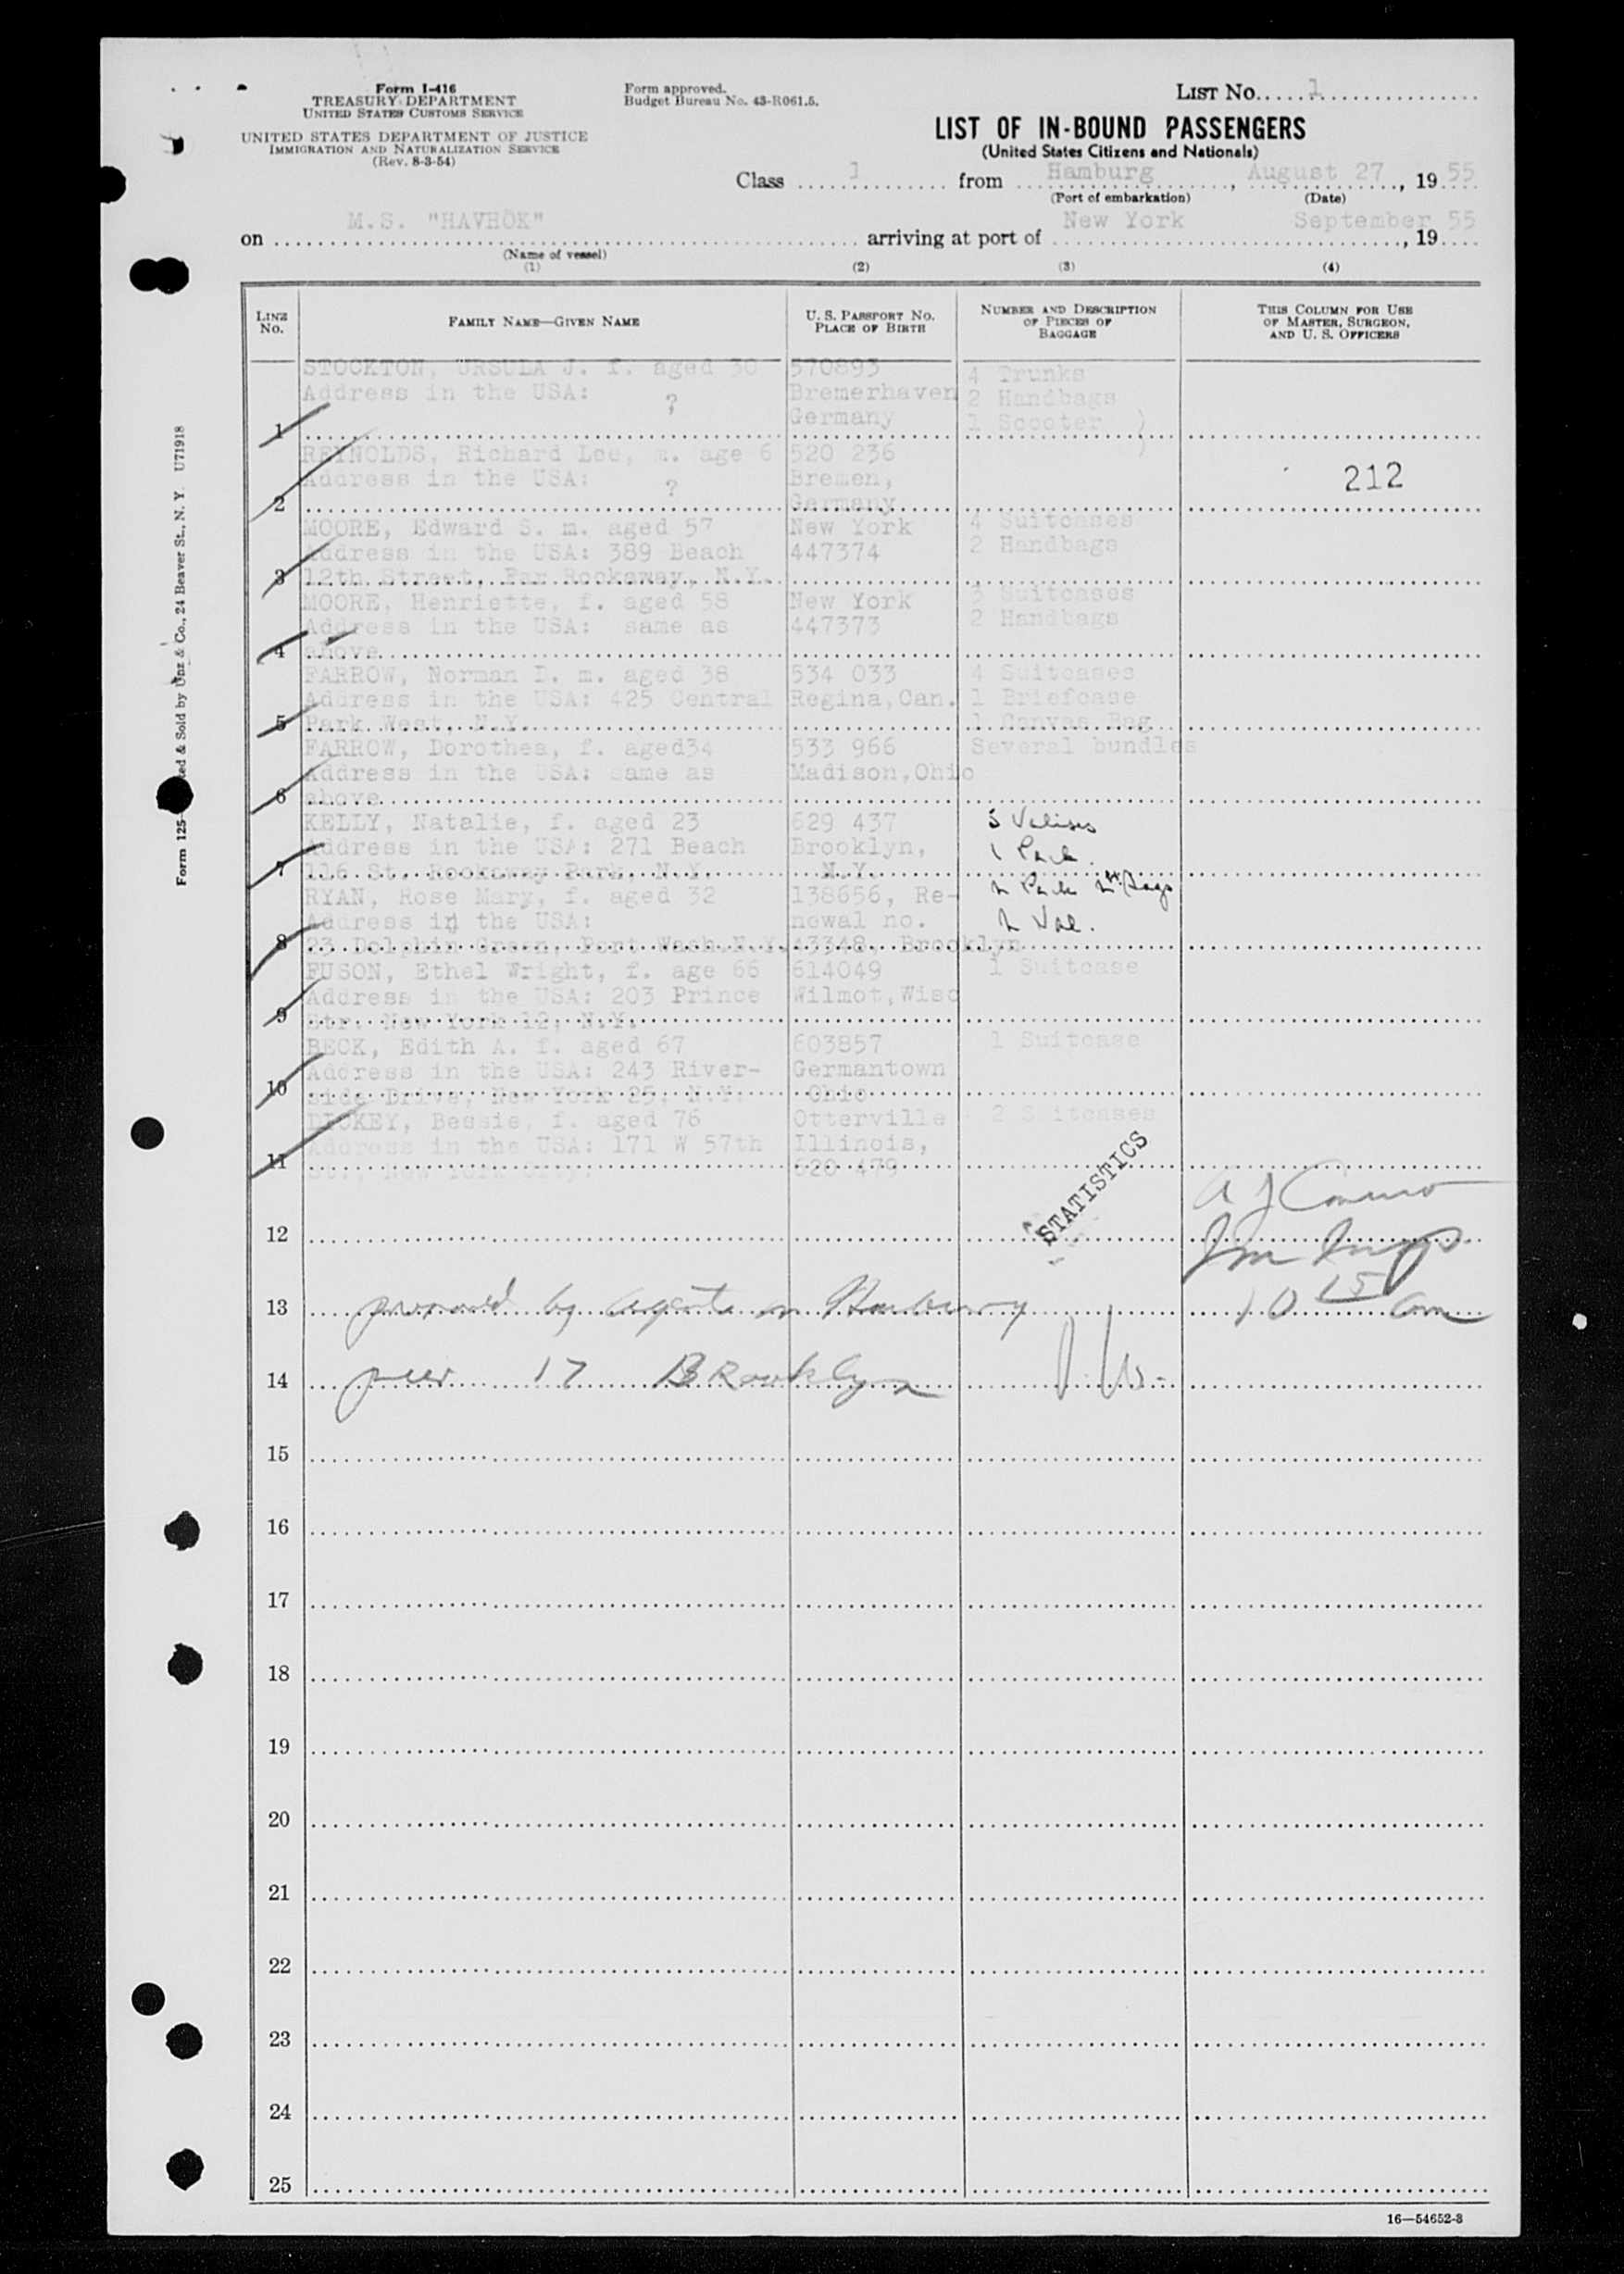 Form I-416
TREASURY DEPARTMENT
UNITED STATES CUSTOMS SERVICE
UNITED STATES DEPARTMENT OF JUSTICE
IMMIGRATION AND NATURALIZATION SERVICE
(Rev. 8-3-54)
Form approved.
Budget Bureau No. 43-R061.5.
LIST No. 1
LIST OF IN-BOUND PASSENGERS
(United States Citizens and Nationals)
Class 1 from Hamburg, August 27, 1955
(Port of embarkation) (Date)
on M.S. "HAVHÖK" arriving at port of New York September, 1955
(Name of vessel)
(1) (2) (3) (4)
LINE No.
FAMILY NAME—GIVEN NAME
U. S. PASSPORT NO.
PLACE OF BIRTH
NUMBER AND DESCRIPTION
OF PIECES OF
BAGGAGE
THIS COLUMN FOR USE
OF MASTER, SURGEON,
AND U. S. OFFICERS
STOCKTON, URSULA J. f. aged 30 570893 4 Trunks
Address in the USA: ? Bremerhaven 2 Handbags
1 Germany 1 Scooter
REYNOLDS, Richard Lee, m. age 6 520 236
Address in the USA: ? Bremen, 212
2 Germany
MOORE, Edward S. m. aged 57 New York 4 Suitcases
Address in the USA: 389 Beach 447374 2 Handbags
3 12th Street, Far Rockaway, N.Y.
MOORE, Henriette, f. aged 58 New York 3 Suitcases
Address in the USA: same as 447373 2 Handbags
4 above
FARROW, Norman D. m. aged 38 534 033 4 Suitcases
Address in the USA: 425 Central Regina,Can. 1 Briefcase
5 Park West, N.Y. 1 Canvas Bag
FARROW, Dorothea, f. aged34 533 966 Several bundles
Address in the USA: same as Madison,Ohio
6 above
KELLY, Natalie, f. aged 23 629 437 3 Valises
Address in the USA: 271 Beach Brooklyn, 1 Pack.
7 116 St. Rockaway Park, N.Y. N.Y.
RYAN, Rose Mary, f. aged 32 138656, Re-
Address in the USA: newal no. 2 Val.
8 23 Dolphin Green, Port Wash.N.Y. 43348, Brooklyn
FUSON, Ethel Wright, f. age 66 614049 1 Suitcase
Address in the USA: 203 Prince Wilmot,Wisc
9 Str. New York 12, N.Y.
BECK, Edith A. f. aged 67 603857 1 Suitcase
Address in the USA: 243 River- Germantown
10 side Drive, New York 25, N.Y. Ohio
DICKEY, Bessie, f. aged 76 Otterville 2 Suitcases
Address in the USA: 171 W 57th Illinois,
11 St., New York City. 620 479
STATISTICS
12
13 by Agents in Hamburg 10 15 am
14 pier 17 Brooklyn
15
16
17
18
19
20
21
22
23
24
25
16—54652-3
Form 125 Printed & Sold by Unz & Co., 24 Beaver St., N. Y. U71918